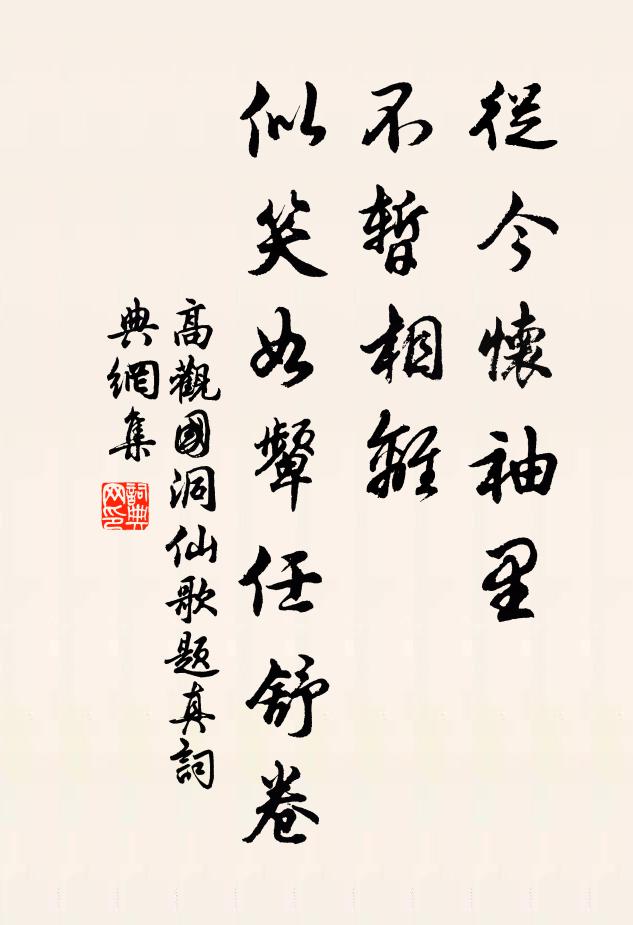 從今懷袖里
不暫相離
似笑如顰任舒卷
高觀國洞仙歌題真詞
典網集
詞典
网印